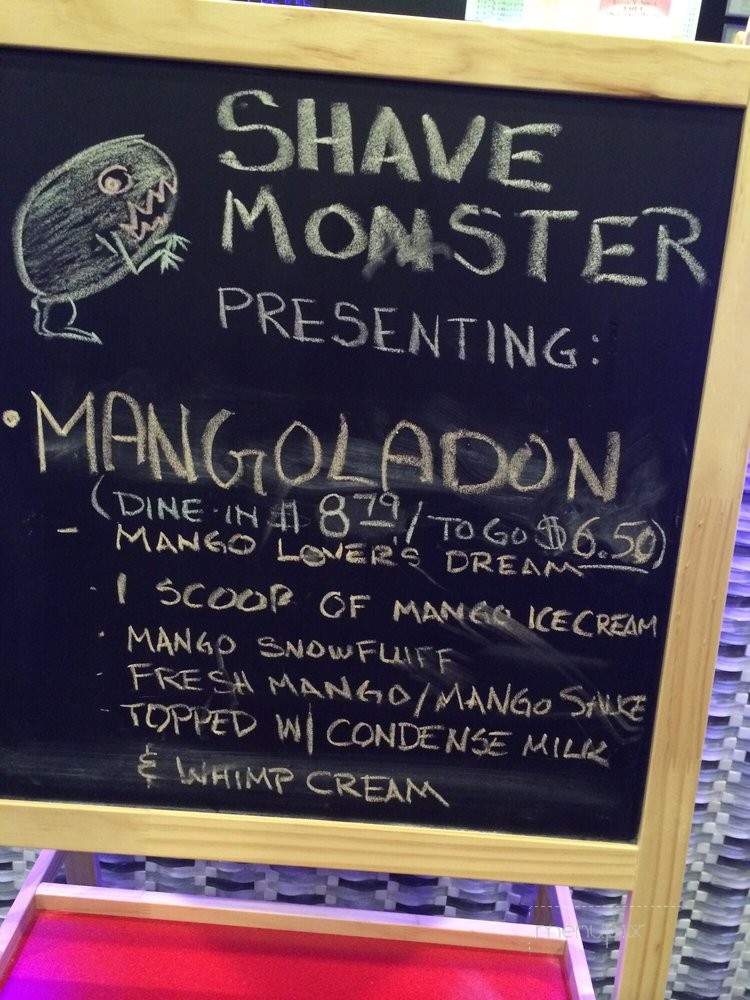 SHAVE
MONSTER
PRESENTING:
• MANGOLADON
(DINE-IN $8.79/TO GO $6.50)
- MANGO LOVER'S DREAM
· 1 SCOOP OF MANGO ICE CREAM
· MANGO SNOWFLUFF
- FRESH MANGO/MANGO SAUCE
- TOPPED W/ CONDENSE MILK
& WHIMP CREAM
menupix